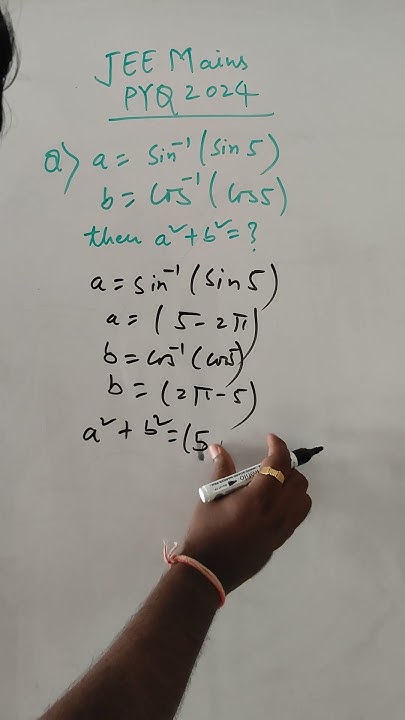 JEE Mains
PYQ 2024
Q) a = sin⁻¹(sin 5)
b = cos⁻¹(cos5)
then a² + b² = ?
a = sin⁻¹(sin 5)
a = (5 - 2π)
b = cos⁻¹(cos5)
b = (2π - 5)
a² + b² = (5